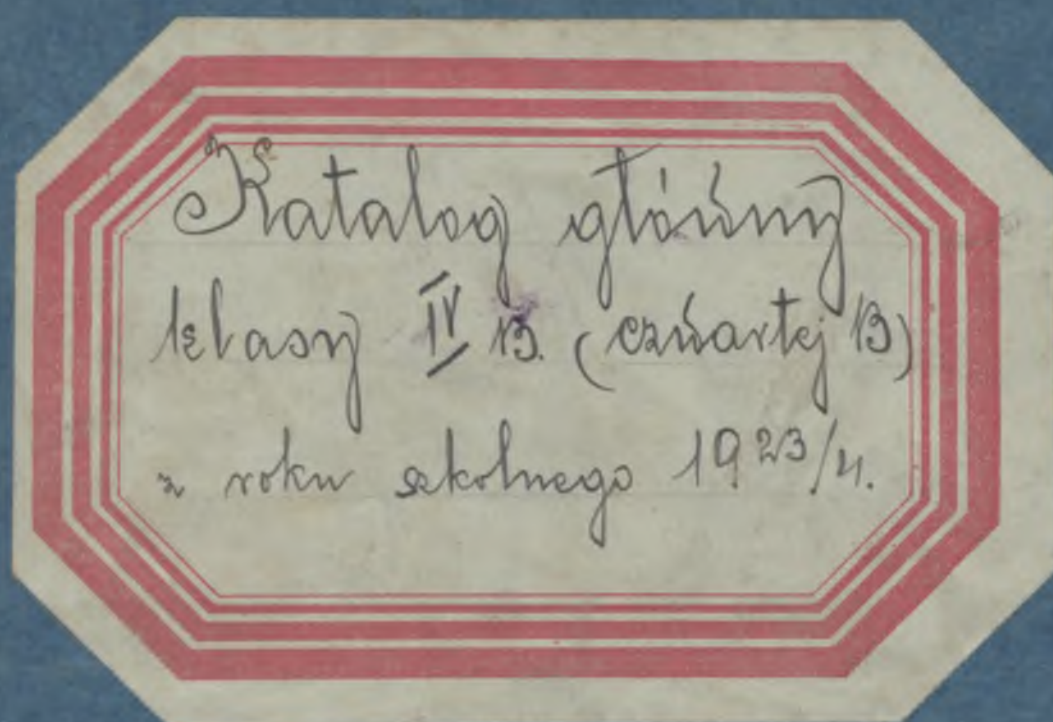 Katalog główny
klasy IV B. (czwartej B)
z roku szkolnego 1923/4.